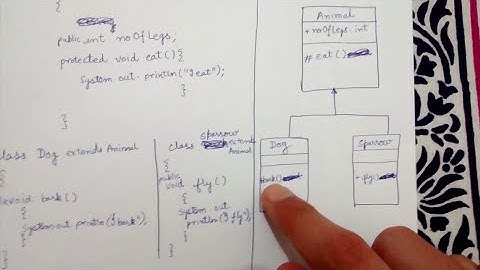 {
public int noOfLegs;
protected void eat(){
System.out.println("I eat");
}
}
class Dog extends Animal
{
void bark()
{
System.out.println("I bark");
}
}
class Sparrow extends
Animal
{
public
void fly()
{
System.out.
println("I fly");
}
}
Animal
+ noOfLegs: int
# eat()
Dog
bark()
Sparrow
+ fly()